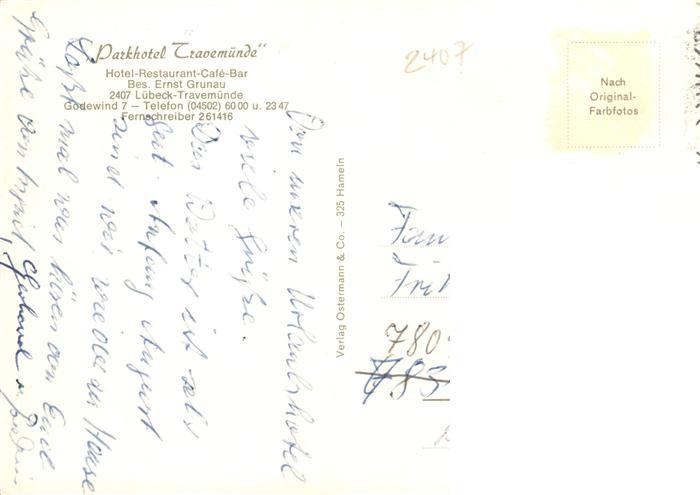 „Parkhotel Travemünde“
Hotel-Restaurant-Café-Bar
Bes. Ernst Grunau
2407 Lübeck-Travemünde
Godewind 7 — Telefon (04502) 6000 u. 2347
Fernschreiber 261416
2407
Nach
Original-
Farbfotos
Verlag Ostermann & Co. — 325 Hameln
Von unseren Urlaubshotel
viele Grüße.
Das Wetter ist
Seit Anfang August
sind wir wieder zu Hause
Laßt mal was hören
Grüße
Gerhard u.
Fam
780